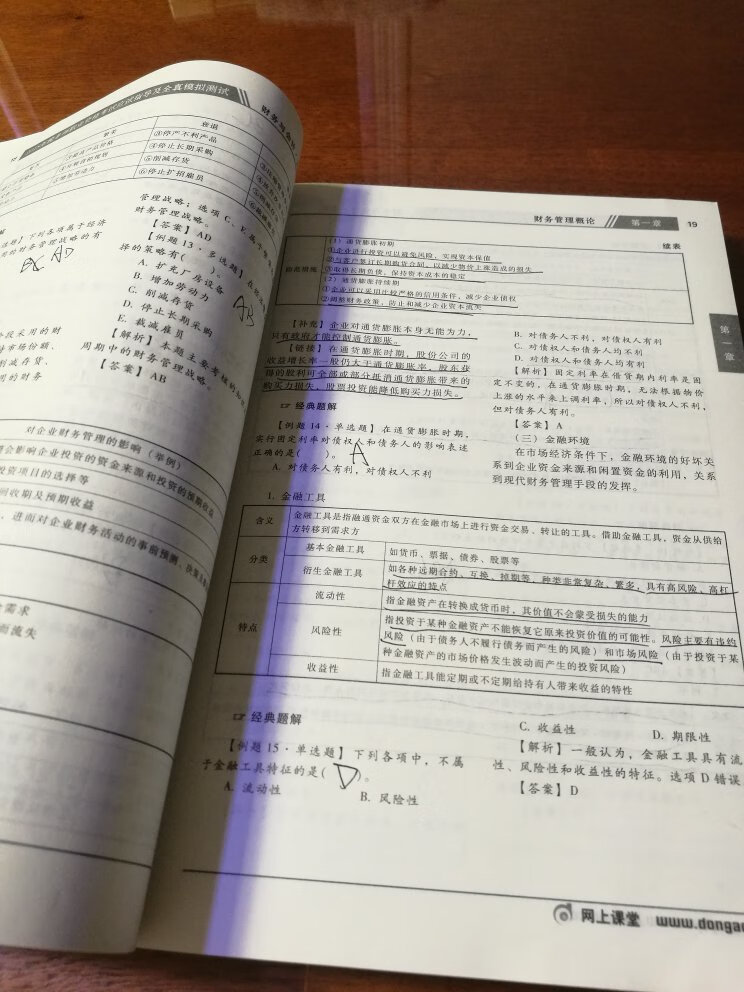 应试指导及全真模拟测试
财务与会计
衰退
③停产不利产品
④停止长期采购
⑤削减存货
⑥停止扩招雇员
下列各项属于经济
AD
管理战略；选项 C、E
财务管理战略。
【答案】AD
【例题 13·多选题】
择的策略有(　　)。
A. 扩充厂房设备
AB
B. 增加劳动力
C. 削减存货
D. 停止长期采购
E. 裁减雇员
【解析】本题主要考核
周期中的财务管理战略。
【答案】AB
段采用的财
市场份额、
削减存货、
的财务
对企业财务管理的影响（举例）
会影响企业投资的资金来源和投资的预期收益
投资项目的选择等
回收期及预期收益
，进而对企业财务活动的事前预测、决策
需求
而流失
财务管理概论 第一章 19
续表
防范措施
（1）通货膨胀初期
①企业进行投资可以避免风险，实现资本保值
②与客户签订长期购货合同，以减少物价上涨造成的损失
③取得长期负债，保持资本成本的稳定
（2）通货膨胀持续期
①企业可以采用比较严格的信用条件，减少企业债权
②调整财务政策，防止和减少企业资本流失
第一章
【补充】企业对通货膨胀本身无能为力，
只有政府才能控制通货膨胀。
【链接】在通货膨胀时期，股份公司的
收益增长率一般仍大于通货膨胀率，股东获
得的股利可全部或部分抵消通货膨胀带来的
购买力损失，股票投资能降低购买力损失。
经典题解
【例题 14·单选题】在通货膨胀时期，
实行固定利率对债权人和债务人的影响表述
正确的是(　　)。 A
A. 对债务人有利，对债权人不利
B. 对债务人不利，对债权人有利
C. 对债权人和债务人均不利
D. 对债权人和债务人均有利
【解析】固定利率在借贷期内利率是固
定不变的，在通货膨胀时期，无法根据物价
上涨的水平来上调利率，所以对债权人不利，
但对债务人有利。
【答案】A
（三）金融环境
在市场经济条件下，金融环境的好坏关
系到企业资金来源和闲置资金的利用，关系
到现代财务管理手段的发挥。
1. 金融工具
含义
金融工具是指融通资金双方在金融市场上进行资金交易、转让的工具。借助金融工具，资金从供给
方转移到需求方
分类
基本金融工具 如货币、票据、债券、股票等
衍生金融工具
如各种远期合约、互换、掉期等，种类非常复杂、繁多，具有高风险、高杠
杆效应的特点
特点
流动性 指金融资产在转换成货币时，其价值不会蒙受损失的能力
风险性
指投资于某种金融资产不能恢复它原来投资价值的可能性。风险主要有违约
风险（由于债务人不履行债务而产生的风险）和市场风险（由于投资于某
种金融资产的市场价格发生波动而产生的投资风险）
收益性 指金融工具能定期或不定期给持有人带来收益的特性
经典题解
【例题 15·单选题】下列各项中，不属
于金融工具特征的是( D )。
A. 流动性 B. 风险性
C. 收益性 D. 期限性
【解析】一般认为，金融工具具有流
性、风险性和收益性的特征。选项 D 错误
【答案】D
网上课堂 www.dongao